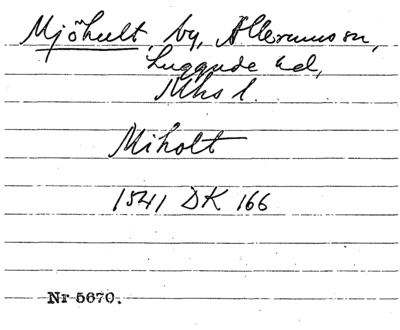 Mjöhult, by, Allerums sn,
Luggude hd,
Mhs l.
Miholt
1541 DK 166
Nr 5670.